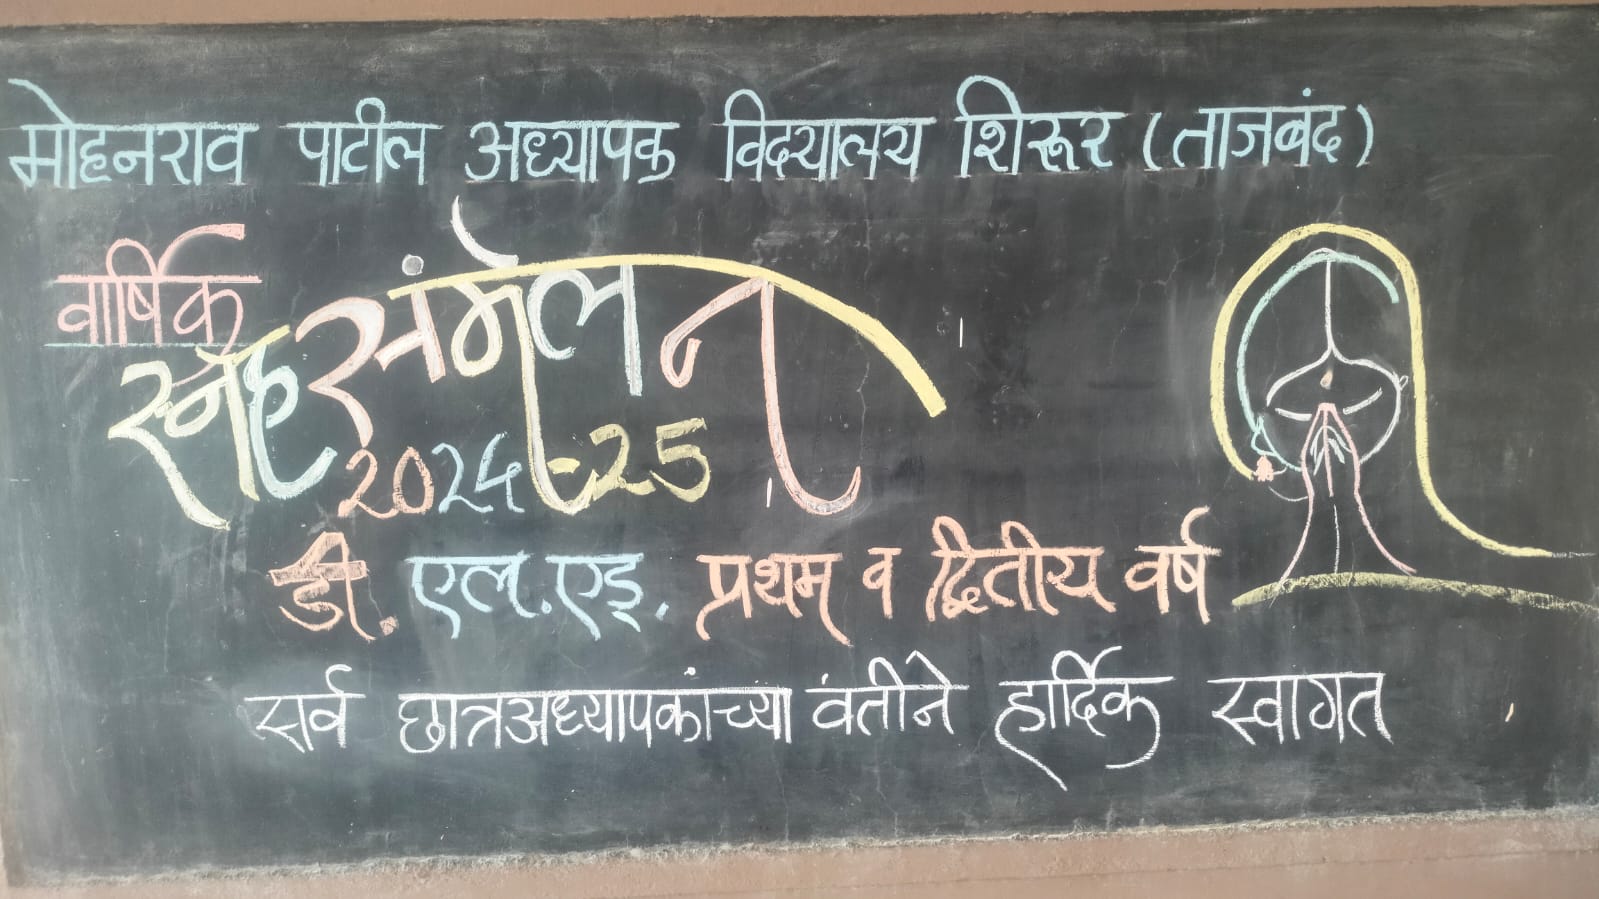 मोहनराव पाटील अध्यापक विद्यालय शिरूर (ताजबंद)
वार्षिक
स्नेहसंमेलन
2024-25
डी. एल.एइ. प्रथम व द्वितीय वर्ष
सर्व छात्रअध्यापकांच्या वंतीने हार्दिक स्वागत